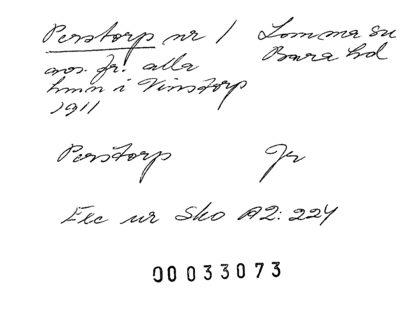 Perstorp nr 1 Lomma sn
avs. fr. alla Bara hd
hmn i Vinstorp
1911
Perstorp Jr
Exc ur Sko A2: 224
00033073